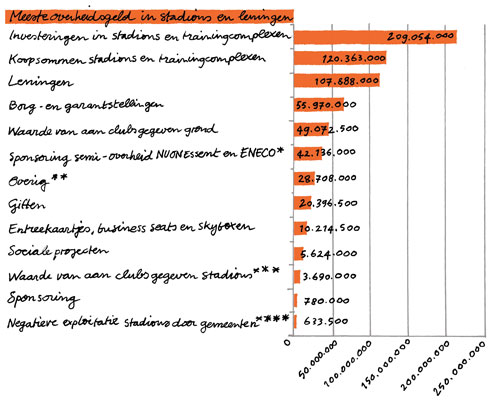 Meeste overheidsgeld in stadions en leningen
Investeringen in stadions en trainingcomplexen 209.054.000
Koopsommen stadions en trainingcomplexen 120.363.000
Leningen 107.688.000
Borg- en garantstellingen 55.970.000
Waarde van aan clubs gegeven grond 49.072.500
Sponsoring semi-overheid NUON Essent en ENECO* 42.136.000
Overig** 28.708.000
Giften 20.396.500
Entreekaartjes, business seats en skyboxen 10.214.500
Sociale projecten 5.624.000
Waarde van aan clubs gegeven stadions*** 3.690.000
Sponsoring 780.000
Negatieve exploitatie stadions door gemeenten**** 633.500
0 50.000.000 100.000.000 150.000.000 200.000.000 250.000.000